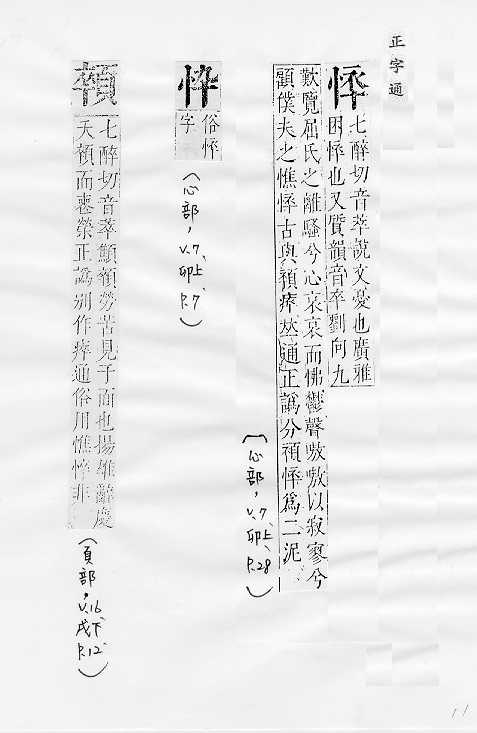 正字通
悴
七醉切音萃說文憂也廣雅
困悴也又質韻音卒劉向九
歎覽屈氏之離騷兮心哀哀而怫鬱聲嗷嗷以寂寥兮
顧僕夫之憔悴古與顇瘁𠀤通正譌分顇悴爲二泥
(心部,V.7,卯上,P.28)
忰
俗悴
字
(心部,V.7,卯上,P.7)
顇
七醉切音萃顦顇勞苦見于面也揚雄辭慶
夭顇而喪榮正譌別作瘁通俗用憔悴非
(頁部,V.16,戌下,P.12)
11